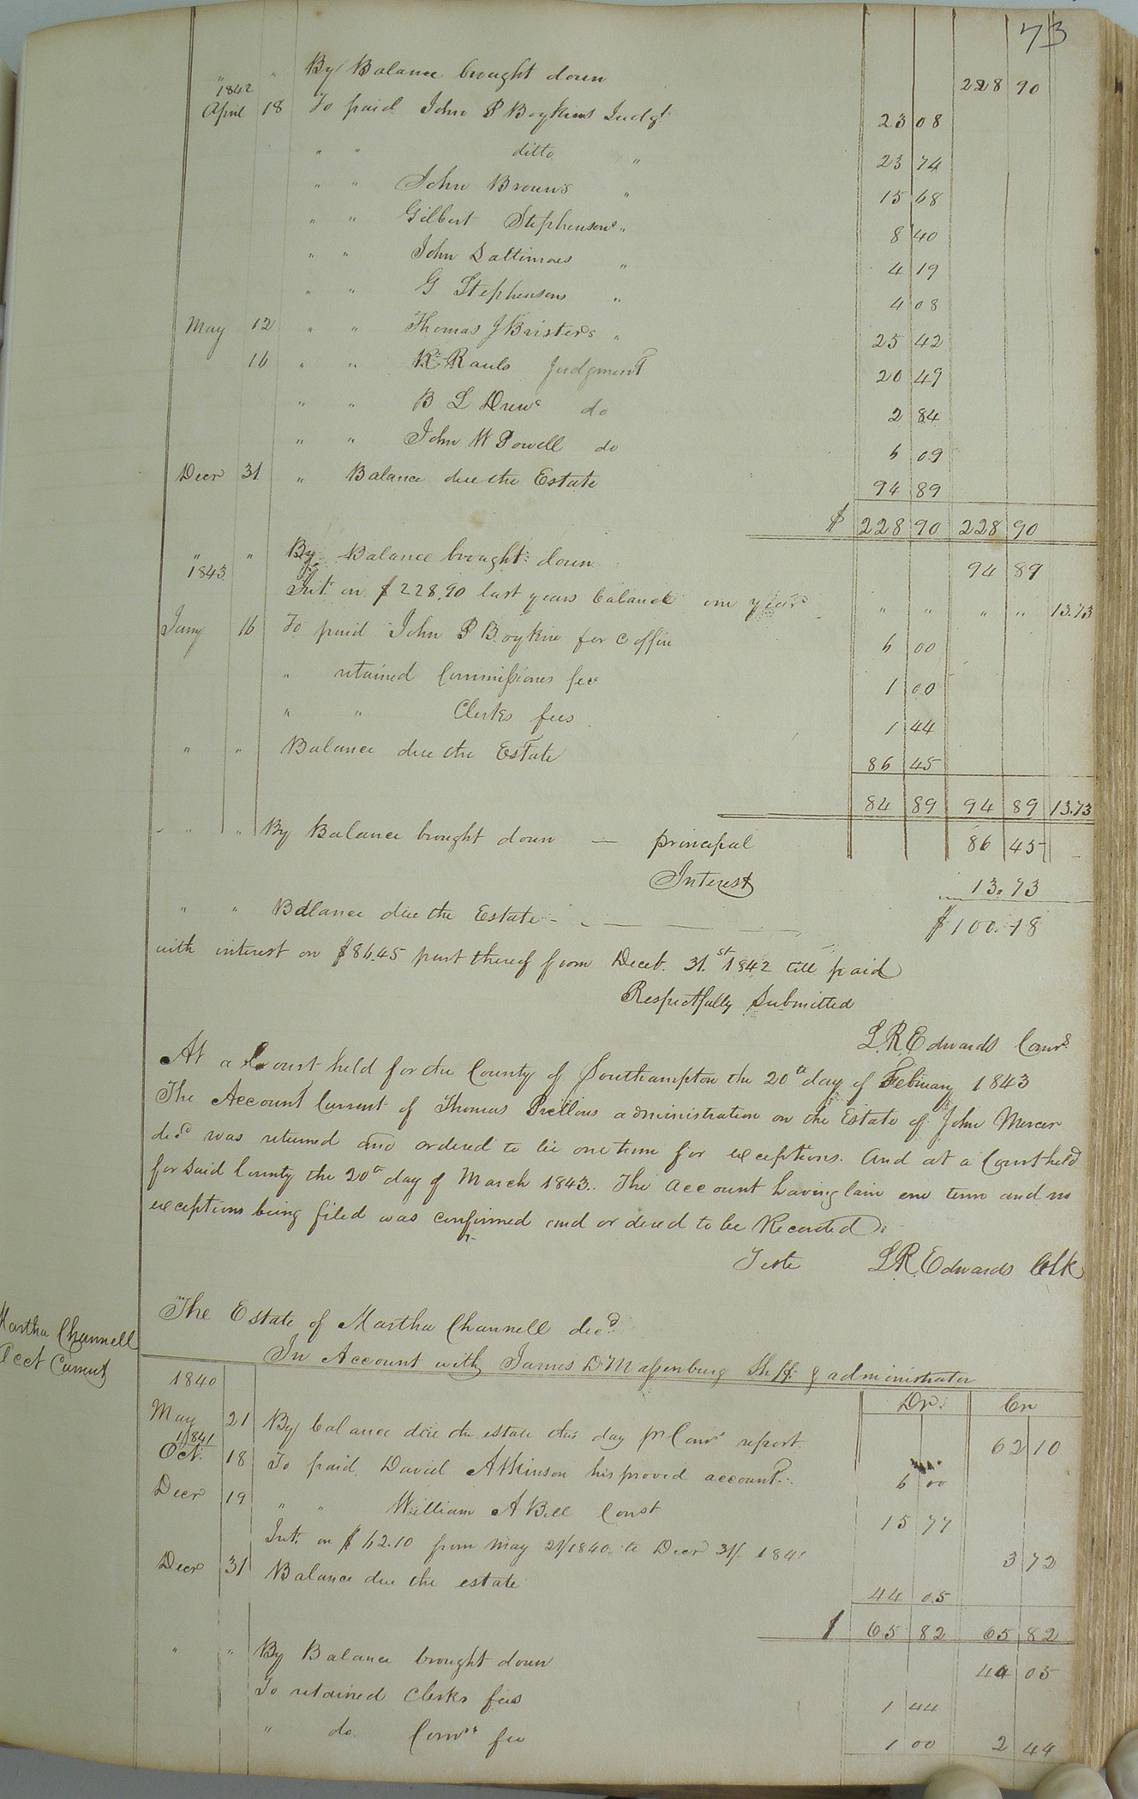 73
" " By Balance brought down 228 90
1842
April 18 To paid John P Boykins Judgt 23 08
" " ditto " 23 74
" " John Browns " 15 68
" " Gilbert Stephensons " 8 40
" " John Daltimores " 4 19
" " G Stephensons " 4 08
May 12 " " Thomas J Bristers " 25 42
16 " " Judgment 20 49
" " B L Drews do 2 84
" " John W Powell do 6 09
Decr 31 " Balance due the Estate 94 89
$ 228 90 228 90
" " By Balance brought down 94 89
1843
Int on $228.90 last years balance one year " " " " 13.73
Jany 16 To paid John P Boykin for Coffin 6 00
" retained Commissioners fee 1 00
" " Clerks fees 1 44
" " Balance due the Estate 86 45
84 89 94 89 13.73
" " By Balance brought down — principal 86 45
Interest 13.73
" " Balance due the Estate $100.18
with interest on $86.45 part thereof from Decbr. 31.st 1842 till paid
Respectfully Submitted
L.R. Edwards Comr
At a Court held for the County of Southampton the 20th day of February 1843
The Account Current of Thomas administration on the Estate of John Mercer
decd was returned and ordered to lie one term for exceptions. And at a Court held
for said County the 20th day of March 1843. The account having lain one term and no
exceptions being filed was confirmed and ordered to be Recorded.
Teste L.R. Edwards Clk
Martha Channell
Acct Current
The Estate of Martha Channell decd
In Account with James D Massenburg Shff & administrator
1840 Dr. Cr
May 21 By balance due the estate this day pr Comrs report 62 10
1841
Oct. 18 To paid David Atkinson his proved account 6 00
Decr 19 " " William A Bell Const 15 77
Int. on $62.10 from May 21/1840 to Decr 31/ 1841 3 72
Decr 31 Balance due the estate 44 05
$ 65 82 65 82
" " By Balance brought down 44 05
To retained Clerks fees 1 44
" do Comrs fee 1 00 2 44